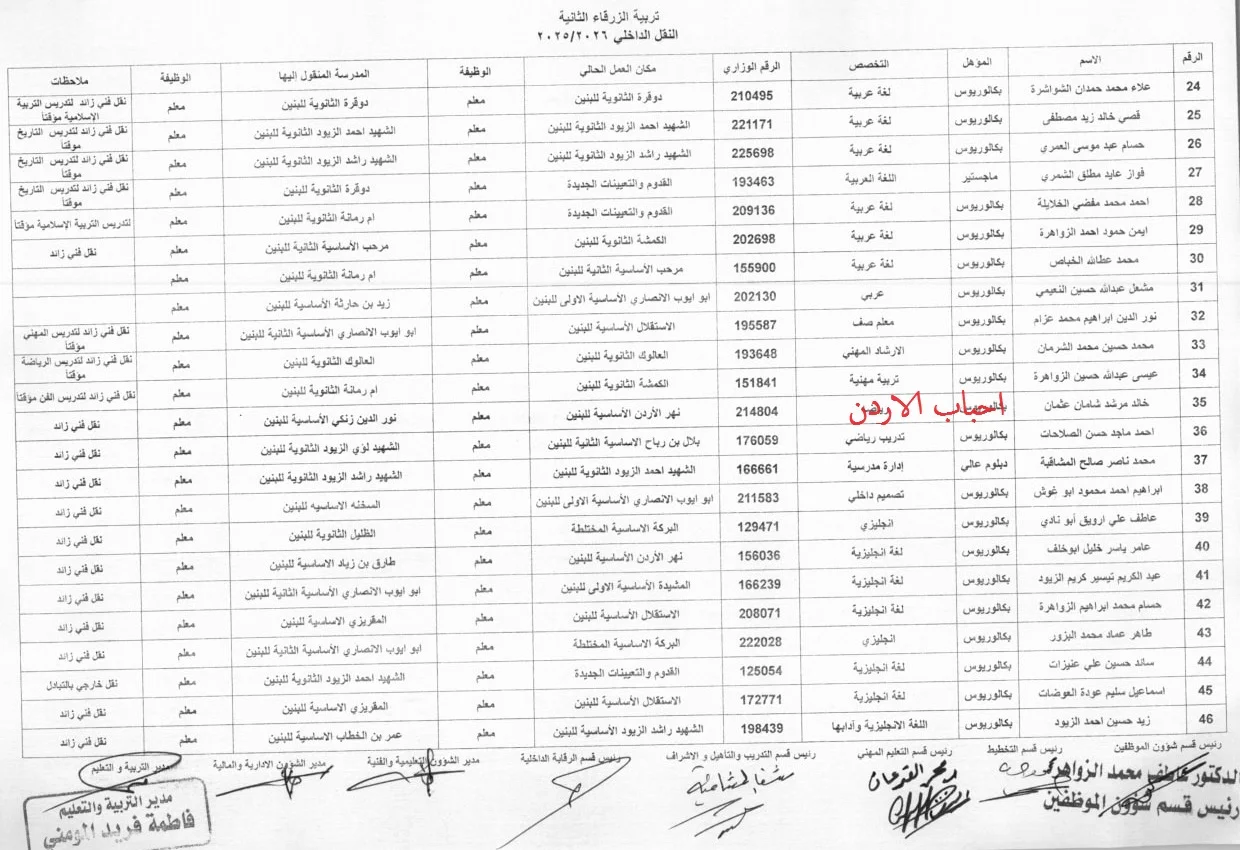 تربية الزرقاء الثانية
النقل الداخلي ٢٠٢٥/٢٠٢٦
الرقم الاسم المؤهل التخصص الرقم الوزاري مكان العمل الحالي الوظيفة المدرسة المنقول إليها الوظيفة ملاحظات
24 علاء محمد حمدان الشواشرة بكالوريوس لغة عربية 210495 دوقرة الثانوية للبنين معلم دوقرة الثانوية للبنين معلم نقل فني زائد لتدريس التربية الإسلامية مؤقتاً
25 قصي خالد زيد مصطفى بكالوريوس لغة عربية 221171 الشهيد احمد الزيود الثانوية للبنين معلم الشهيد احمد الزيود الثانوية للبنين معلم نقل فني زائد لتدريس التاريخ مؤقتاً
26 حسام عبد موسى العمري بكالوريوس لغة عربية 225698 الشهيد راشد الزيود الثانوية للبنين معلم الشهيد راشد الزيود الثانوية للبنين معلم نقل فني زائد لتدريس التاريخ مؤقتاً
27 فواز عايد مطلق الشمري ماجستير اللغة العربية 193463 القدوم والتعيينات الجديدة معلم دوقرة الثانوية للبنين معلم نقل فني زائد لتدريس التاريخ مؤقتاً
28 احمد محمد مفضي الخلايلة بكالوريوس لغة عربية 209136 القدوم والتعيينات الجديدة معلم ام رمانة الثانوية للبنين معلم لتدريس التربية الإسلامية مؤقتاً
29 ايمن حمود احمد الزواهرة بكالوريوس لغة عربية 202698 الكمشة الثانوية للبنين معلم مرحب الأساسية الثانية للبنين معلم نقل فني زائد
30 محمد عطالله الخباص بكالوريوس لغة عربية 155900 مرحب الأساسية الثانية للبنين معلم ام رمانة الثانوية للبنين معلم
31 مشعل عبدالله حسين النعيمي بكالوريوس عربي 202130 ابو ايوب الانصاري الأساسية الاولى للبنين معلم زيد بن حارثة الأساسية للبنين معلم
32 نور الدين ابراهيم محمد عزام بكالوريوس معلم صف 195587 الاستقلال الأساسية للبنين معلم ابو ايوب الانصاري الأساسية الثانية للبنين معلم نقل فني زائد لتدريس المهني مؤقتاً
33 محمد حسين محمد الشرمان بكالوريوس الارشاد المهني 193648 العالوك الثانوية للبنين معلم العالوك الثانوية للبنين معلم نقل فني زائد لتدريس الرياضة مؤقتاً
34 عيسى عبدالله حسين الزواهرة بكالوريوس تربية مهنية 151841 الكمشة الثانوية للبنين معلم ام رمانة الثانوية للبنين معلم نقل فني زائد لتدريس الفن مؤقتاً
35 خالد مرشد شامان عثمان بكالوريوس 214804 نهر الأردن الأساسية للبنين معلم نور الدين زنكي الأساسية للبنين معلم نقل فني زائد
احباب الاردن
36 احمد ماجد حسن الصلاحات بكالوريوس تدريب رياضي 176059 بلال بن رباح الاساسية الثانية للبنين معلم الشهيد لؤي الزيود الثانوية للبنين معلم نقل فني زائد
37 محمد ناصر صالح المشاقبة دبلوم عالي إدارة مدرسية 166661 الشهيد احمد الزيود الثانوية للبنين معلم الشهيد راشد الزيود الثانوية للبنين معلم نقل فني زائد
38 ابراهيم احمد محمود ابو غوش بكالوريوس تصميم داخلي 211583 ابو ايوب الانصاري الأساسية الاولى للبنين معلم السخنه الاساسيه للبنين معلم نقل فني زائد
39 عاطف علي ارويق أبو نادي بكالوريوس انجليزي 129471 البركة الاساسية المختلطة معلم الظليل الثانوية للبنين معلم نقل فني زائد
40 عامر ياسر خليل ابوخلف بكالوريوس لغة انجليزية 156036 نهر الأردن الأساسية للبنين معلم طارق بن زياد الاساسية للبنين معلم نقل فني زائد
41 عبد الكريم تيسير كريم الزيود بكالوريوس لغة انجليزية 166239 المشيدة الأساسية الاولى للبنين معلم ابو ايوب الانصاري الأساسية الثانية للبنين معلم نقل فني زائد
42 حسام محمد ابراهيم الزواهرة بكالوريوس لغة انجليزية 208071 الاستقلال الأساسية للبنين معلم المقريزي الاساسية للبنين معلم نقل فني زائد
43 طاهر عماد محمد البزور بكالوريوس انجليزي 222028 البركة الاساسية المختلطة معلم ابو ايوب الانصاري الأساسية الثانية للبنين معلم نقل فني زائد
44 ساند حسين علي عنيزات بكالوريوس لغة انجليزية 125054 القدوم والتعيينات الجديدة معلم الشهيد احمد الزيود الثانوية للبنين معلم نقل خارجي بالتبادل
45 اسماعيل سليم عودة العوضات بكالوريوس لغة انجليزية 172771 الاستقلال الأساسية للبنين معلم المقريزي الاساسية للبنين معلم نقل فني زائد
46 زيد حسين احمد الزيود بكالوريوس اللغة الانجليزية وأدابها 198439 الشهيد راشد الزيود الأساسية للبنين معلم عمر بن الخطاب الاساسية للبنين معلم نقل فني زائد
رئيس قسم شؤون الموظفين رئيس قسم التخطيط رئيس قسم التعليم المهني رئيس قسم التدريب والتأهيل و الاشراف رئيس قسم الرقابة الداخلية مدير الشؤون التعليمية والفنية مدير الشؤون الادارية والمالية مدير التربية و التعليم
الدكتور عاطف محمد الزواهرة
رئيس قسم شؤون الموظفين
مدير التربية والتعليم
فاطمة فريد المومني